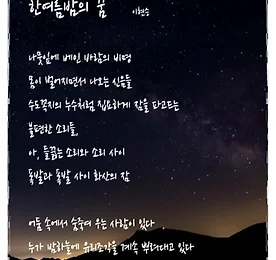 한여름밤의 꿈 이현승
나뭇잎에 베인 바람의 비명
몸이 벌어지면서 나오는 신음들
수도꼭지의 누수처럼 집요하게 잠을 파고드는
불편한 소리들,
아, 들끓는 소리와 소리 사이
폭발과 폭발 사이 화산의 잠
어둠 속에서 숨죽여 우는 사람이 있다
누가 밤하늘에 유리조각을 계속 뿌려대고 있다